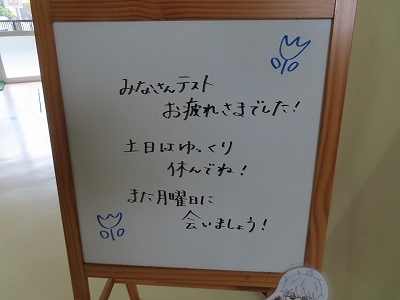 みなさんテスト
お疲れさまでした!
土日はゆっくり
休んでね!
また月曜日に
会いましょう!